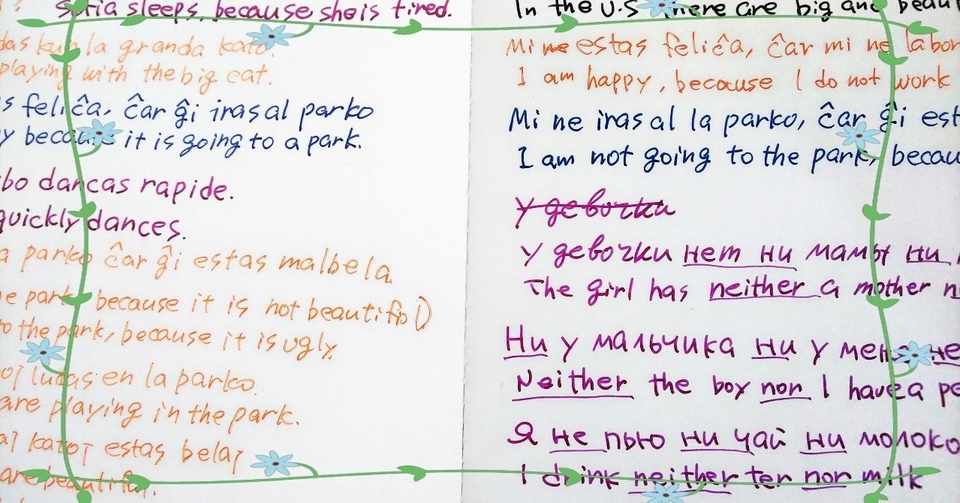 Sofia sleeps, because she is tired.
la granda kato.
playing with the big cat.
feliĉa, ĉar ĝi iras al parko
because it is going to a park.
dancas rapide.
quickly dances.
parko ĉar ĝi estas malbela.
park because it is not beautiful)
to the park, because it is ugly.
ludas en la parko.
are playing in the park.
katoj estas belaj
are beautiful.
In the U.S there are big and
Mi ne estas feliĉa, ĉar mi ne
I am happy, because I do not work
Mi ne iras al la parko, ĉar ĝi
I am not going to the park,
У девочки
У девочки нет ни мамы ни
The girl has neither a mother
Ни у мальчика ни у меня
Neither the boy nor I have a
Я не пью ни чай ни молоко
I drink neither ter nor milk